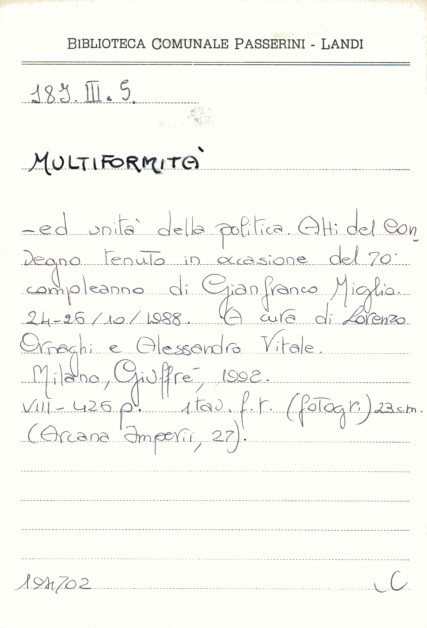 BIBLIOTECA COMUNALE PASSERINI - LANDI
187. III. 5.
MULTIFORMITÀ
- ed unità della politica. Atti del Con_
vegno tenuto in occasione del 70.
compleanno di Gianfranco Miglio.
24-26/10/1988. A cura di Lorenzo
Ornaghi e Alessandro Vitale.
Milano, Giuffrè, 1992.
VIII-426 p. 1 tav. f.t. (fotogr.) 23 cm.
(Arcana Imperii, 27).
C